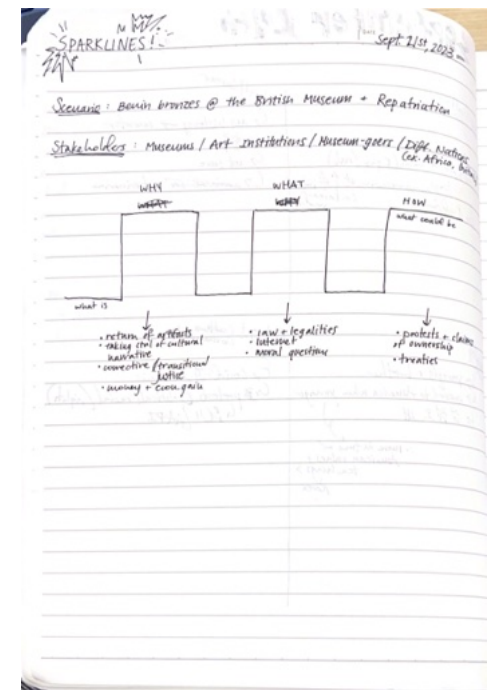 SPARKLINES!
Sept. 21st, 2023
Scenario: Benin bronzes @ the British Museum + Repatriation
Stakeholders: Museums / Art Institutions / Museum-goers / Diff. Nations
(ex. Africa,
WHY
WHAT
HOW
what could be
what is
• return of artifacts
• taking ctrl of cultural
narrative
• corrective / transitional
justice
• money + econ gain
• law + legalities
• internet
• moral questions
• protests + claims
of ownership
• treaties